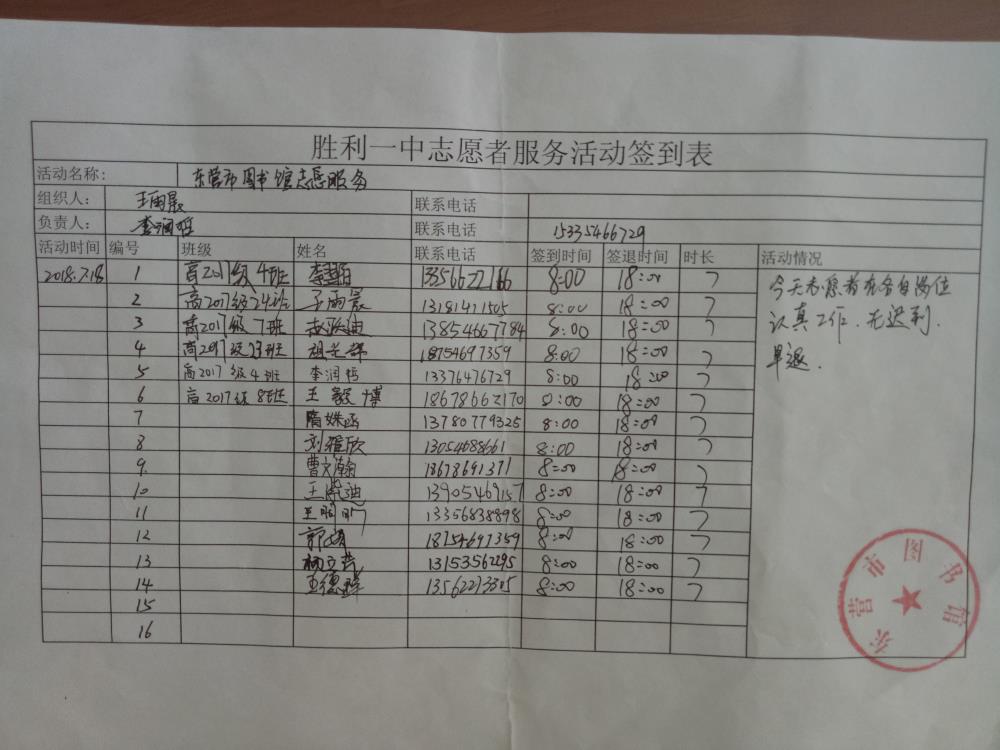 胜利一中志愿者服务活动签到表
活动名称: 东营市图书馆志愿服务
组织人: 王雨晨 联系电话
负责人: 李润哲 联系电话 15335466729
活动时间 编号 班级 姓名 联系电话 签到时间 签退时间 时长 活动情况
2018.7.18 1 高2017级4班 13356622166 8:00 18:00 7
2 高2017级24班 王雨晨 13181411505 8:00 18:00 7
3 高2017级7班 赵跃迪 13854667784 8:00 18:00 7
4 高2017级23班 祖光辉 18754697359 8:00 18:00 7
5 高2017级4班 李润哲 13376476729 8:00 18:00 7
6 高2017级8班 王毅博 18678662170 8:00 18:00 7
7 隋姝函 13780779325 8:00 18:00 7
8 刘雅欣 13054688661 8:00 18:00 7
9 曹文瀚 18678691371 8:00 18:00 7
10 13905469157 8:00 18:00 7
11 13356838898 8:00 18:00 7
12 18754697359 8:00 18:00 7
13 13153356295 8:00 18:00 7
14 王德 13562273305 8:00 18:00 7
15
16
今天志愿者在各自岗位
认真工作,无迟到.
早退.
东营市图书馆